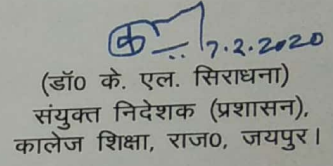 17.2.2020
(डॉ0 के. एल. सिराधना)
संयुक्त निदेशक (प्रशासन),
कालेज शिक्षा, राज0, जयपुर।